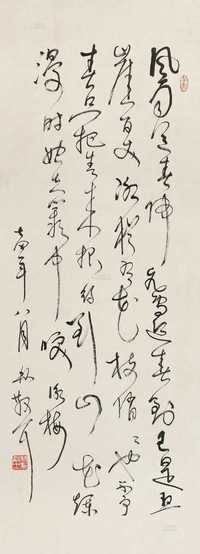 風雨送春歸飛雪迎春到已是懸
崖百丈冰猶有花枝俏々也不爭
春只把春來報待到山花爛
漫時她在叢中笑 詠梅
七四年八月 林散耳